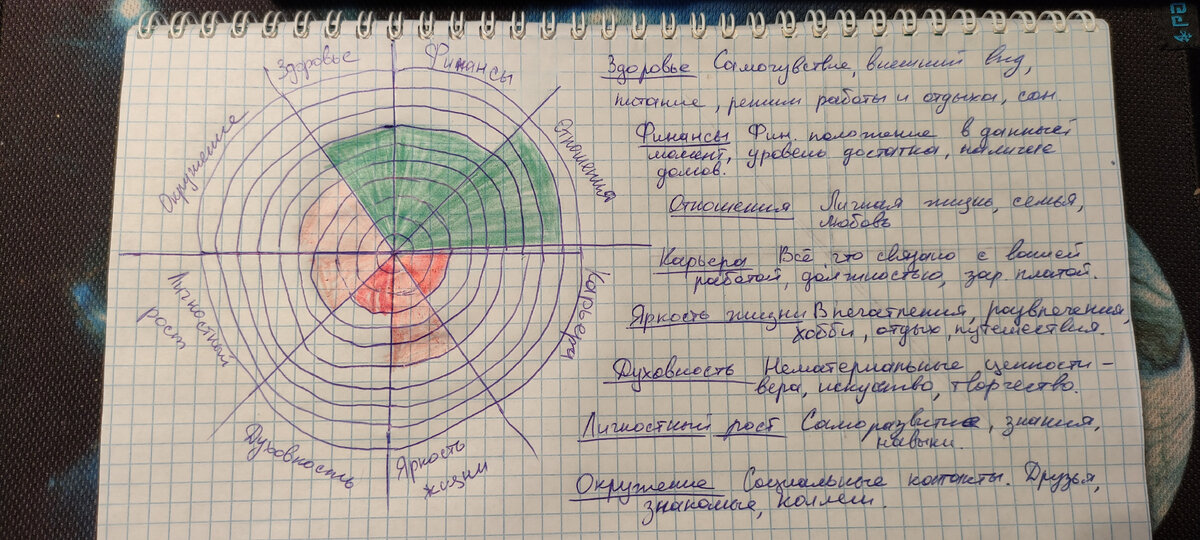 Здоровье
Финансы
Отношения
Карьера
Яркость
жизни
Духовность
Личностный
рост
Окружение
Здоровье Самочувствие, внешний вид,
питание, режим работы и отдыха, сон.
Финансы Фин. положение в данный
момент, уровень достатка, наличие
домов.
Отношения Личная жизнь, семья,
любовь
Карьера Всё что связано с вашей
работой, должностью, зар. платой.
Яркость жизни Впечатления, развлечения,
хобби, отдых, путешествия.
Духовность Нематериальные ценности –
вера, искуство, творчество.
Личностный рост Саморазвитие, знания,
навыки.
Окружение Социальные контакты. Друзья,
знакомые, коллеги.